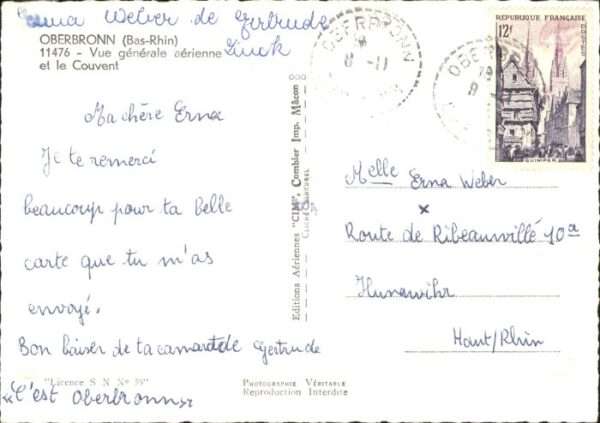 Erna Weber de Gertrude
Zuck
OBERBRONN (Bas-Rhin)
11476 - Vue générale aérienne
et le Couvent
OBERBRONN
8 -11
REPUBLIQUE FRANÇAISE
12F
POSTES
QUIMPER
Ma chère Erna
Je te remerci
beaucoup pour ta belle
carte que tu m'as
envoyé.
Bon baiser de ta camarade Gertrude
«C'est Oberbronn»
Editions Aériennes "CIM", Combier Imp. Mâcon
Melle Erna Weber
x
Route de Ribeauvillé 10a
Hunawihr
Haut/Rhin
"Licence S N N° 39"
PHOTOGRAPHIE VÉRITABLE
Reproduction Interdite